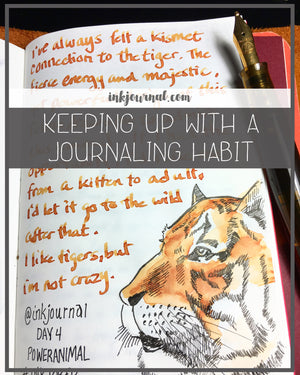 I've always felt a kismet
connection to the tiger. The
fierce energy and majestic,
this
inkjournal.com
KEEPING UP WITH A
JOURNALING HABIT
from a kitten to adult,
I'd let it go to the wild
after that.
I like tigers, but
i'm not crazy.
@inkjournal
DAY 4
POWERANIMAL